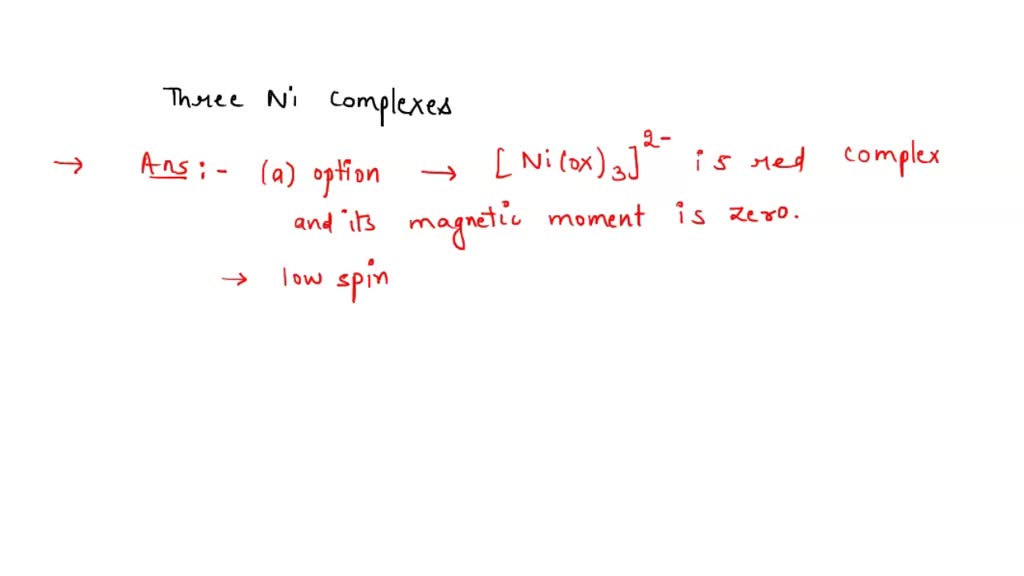 Three Ni Complexes
→ Ans :- (a) option → [Ni(ox)₃]²⁻ is red complex
and its magnetic moment is zero.
→ low spin